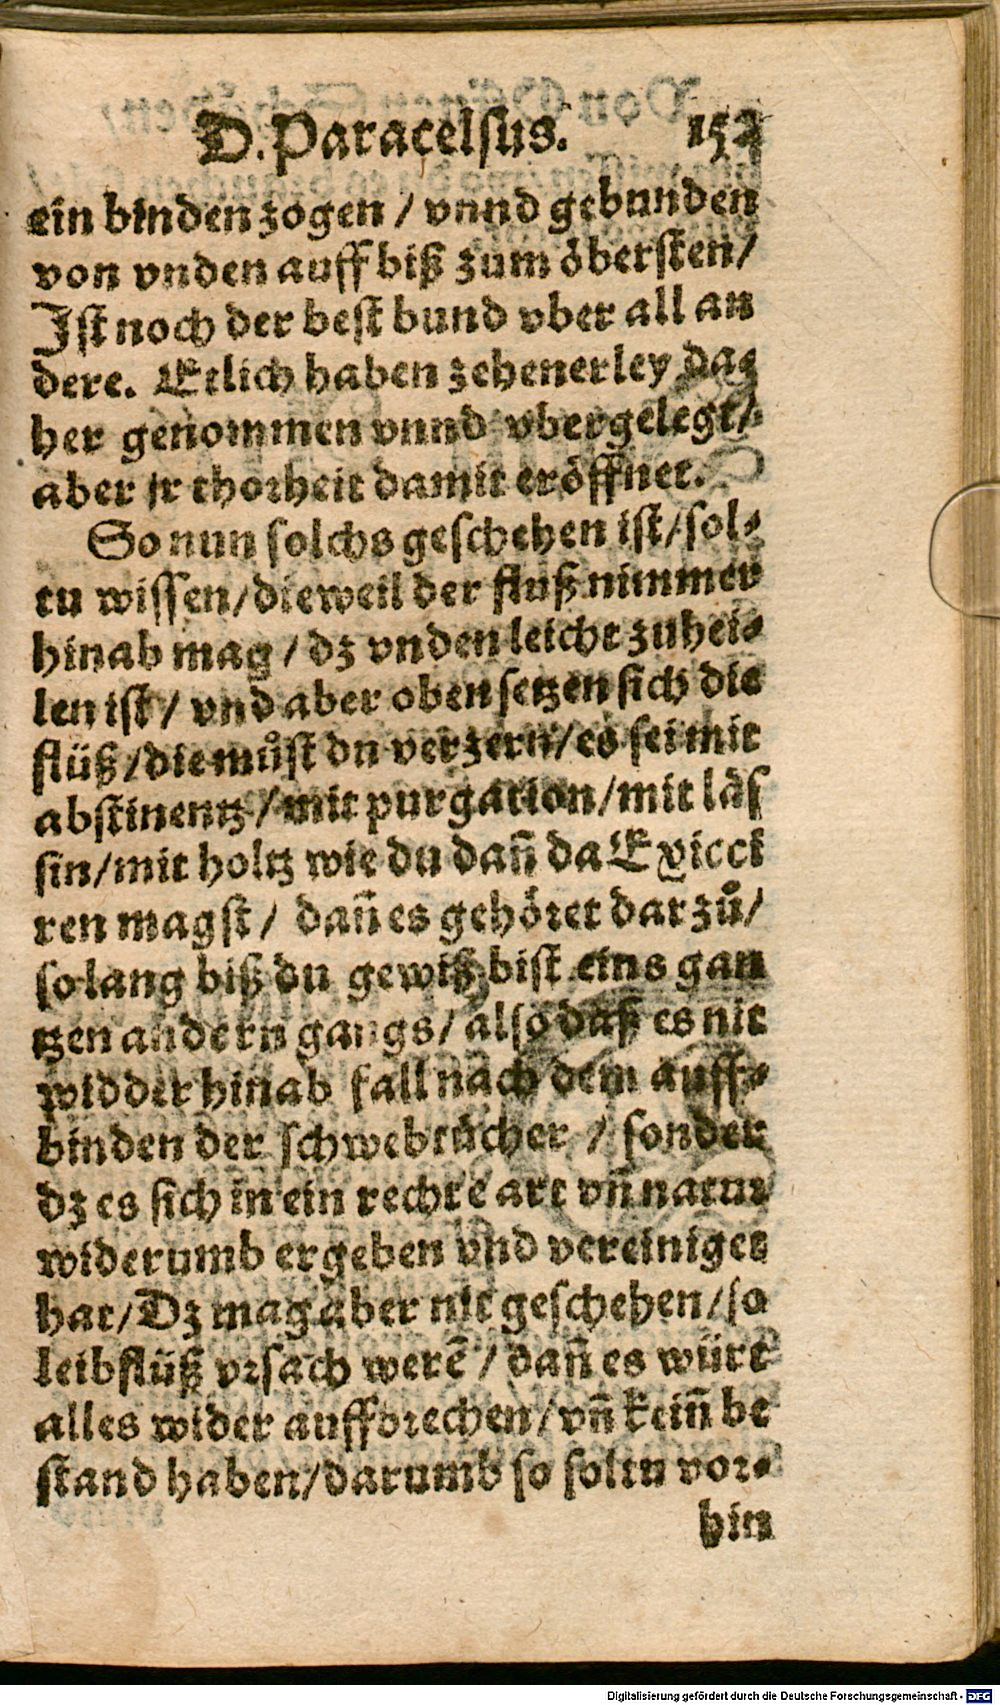 D. Paracelsus. 152
ein binden zogen / vnnd gebunden
von vnden auff biß zum öbersten/
Ist noch der best bund vber all an
dere. Etlich haben zehenerley dar
her genommen vnnd vbergelegt/
aber jr thorheit damit eröffnet.
So nun solchs geschehen ist/sol⸗
tu wissen/dieweil der fluß nimmer
hinab mag / dz vnden leicht zuhei⸗
len ist / vnd aber oben setzen sich die
flüß/die muͦst du verzern/es sei mit
abstinentz/mit purgation/mit läs
sin/mit holtz wie du dañ da Exicci
ren magst / dañ es gehöret darzuͦ/
so lang biß du gewiß bist eins gan
tzen andern gangs/ also daß es nit
widder hinab fall nach dem auff⸗
binden der schwebtücher / sonder
dz es sich in ein rechte art vñ natur
widerumb ergeben vnd vereiniget
hat/Dz mag aber nit geschehen/so
leibflüß vrsach werē / dañ es würt
alles wider auffbrechen/vñ keiñ be
stand haben/darumb so soltu vor⸗
hin
Digitalisierung gefördert durch die Deutsche Forschungsgemeinschaft - DFG